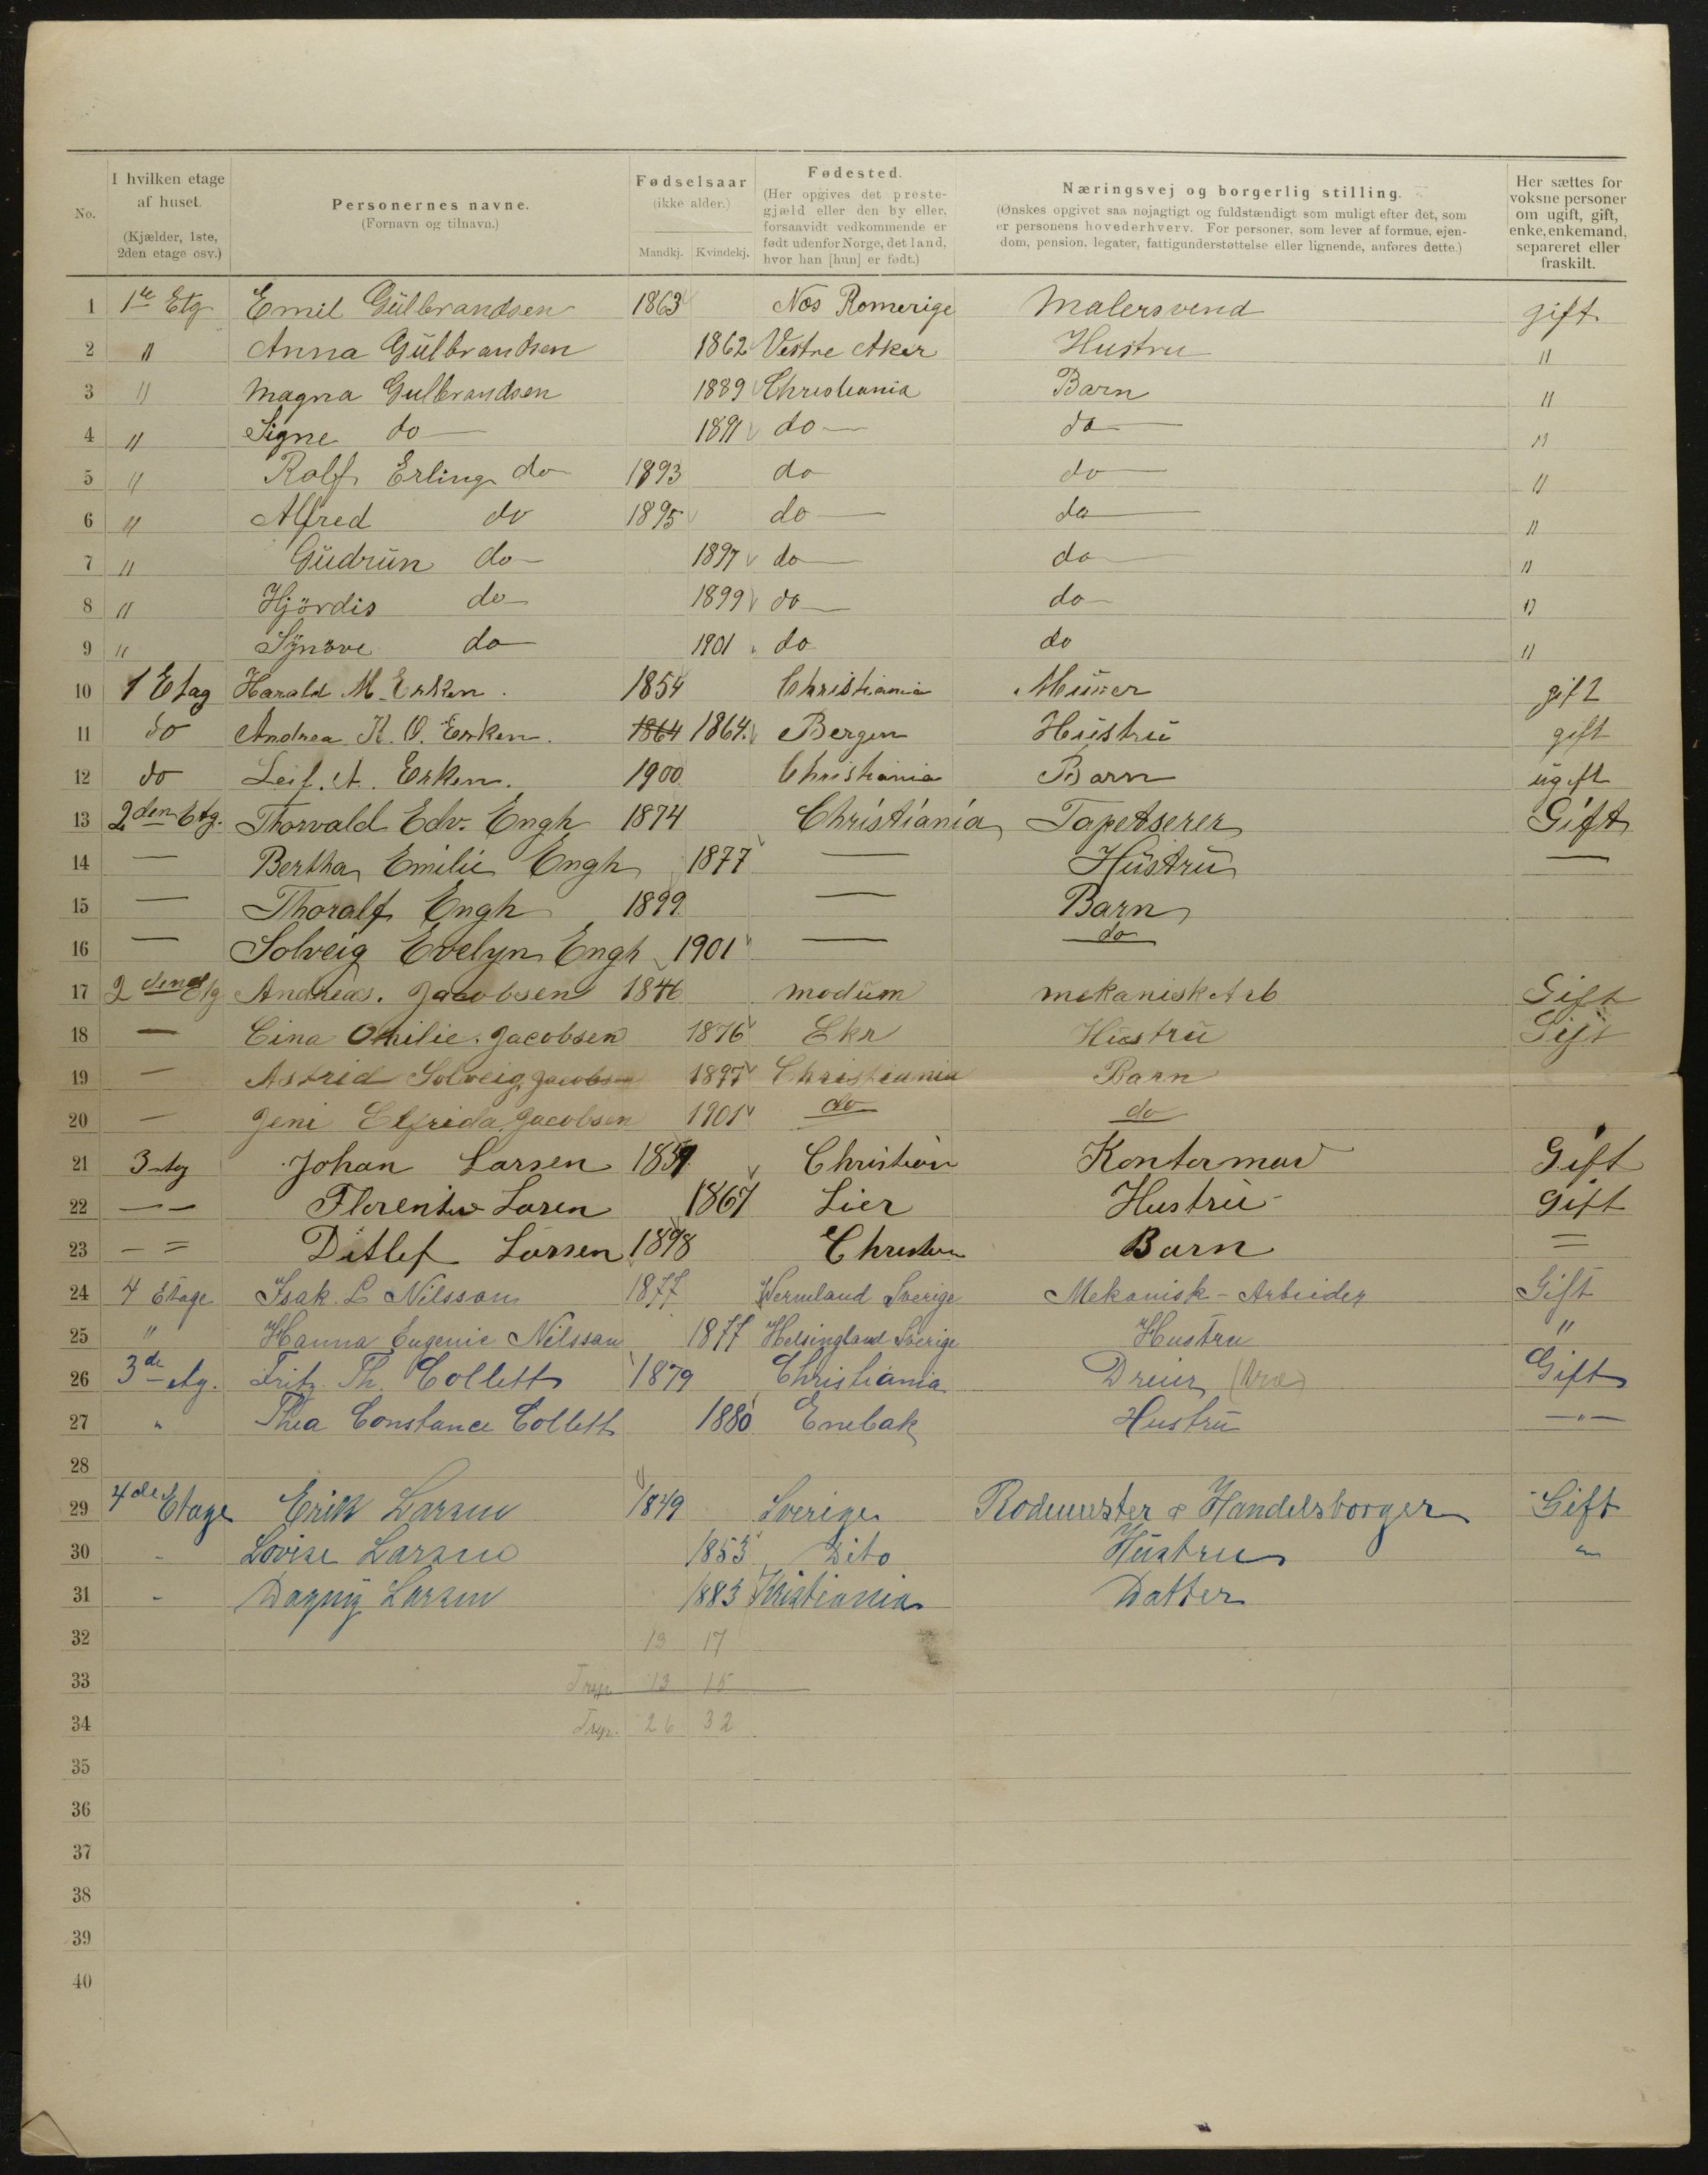 No.
I hvilken etage af huset. (Kjælder, 1ste, 2den etage osv.)
Personernes navne. (Fornavn og tilnavn.)
Fødselsaar (ikke alder.) Mandkj. Kvindekj.
Fødested. (Her opgives det prestegjæld eller den by eller, forsaavidt vedkommende er født udenfor Norge, det land, hvor han [hun] er født.)
Næringsvej og borgerlig stilling. (Ønskes opgivet saa nøjagtigt og fuldstændigt som muligt efter det, som er personens hovederhverv. For personer, som lever af formue, ejendom, pension, legater, fattigunderstøttelse eller lignende, anføres dette.)
Her sættes for voksne personer om ugift, gift, enke, enkemand, separeret eller fraskilt.
1 1ste Etg Emil Gulbrandsen 1863 Nes Romerige Malersvend gift
2 " Anna Gulbrandsen 1862 Vestre Aker Hustru "
3 " Magna Gulbrandsen 1889 Christiania Barn "
4 " Signe do 1891 do do "
5 " Rolf Erling do 1893 do do "
6 " Alfred do 1895 do do "
7 " Gudrun do 1897 do do "
8 " Hjördis do 1899 do do "
9 " Synöve do 1901 do do "
10 1 Etag Harald M. Erken. 1854 Christiania Murer gift
11 do Andrea K. O. Erken. 1864 1864. Bergen Hustru gift
12 do Leif. A. Erken. 1900 Christiania Barn ugift
13 2den Etg. Thorvald Edv. Engh 1874 Christiania Tapetserer Gift
14 — Bertha Emilie Engh 1877 — Hustru —
15 — Thoralf Engh 1899 — Barn
16 — Solveig Evelyn Engh 1901 — do
17 2den Etg Andreas. Jacobsen 1846 Modum mekanisk Arb Gift
18 — Othilie. Jacobsen 1876 Eker Hustru Gift
19 — Astrid Solveig Jacobsen 1897 Christiania Barn
20 — Jeni Elfrida Jacobsen 1901 do do
21 3 etg Johan Larsen 1859 Christian Kontormand Gift
22 — — Larsen 1867 Lier Hustru Gift
23 — = Ditlef Larsen 1898 Christian Barn =
24 4 Etage Isak. L Nilsson 1877 Wermland Sverige Mekanisk - Arbeider Gift
25 " Hanna Eugenie Nilsson 1877 Helsingland Sverige Hustru "
26 3de etg. Fritz Th. Collett 1879 Christiania Dreier Gift
27 " Thea Constance Collett 1880 Enebak Hustru —"—
28
29 4de Etage Erik Larsen 1849 Sverige Rodemester & Handelsborger Gift
30 - Lovise Larsen 1853 Dito Hustru "
31 - Dagny Larsen 1883 Kristiania Datter
32 13 17
33 13 15
34 26 32
35
36
37
38
39
40